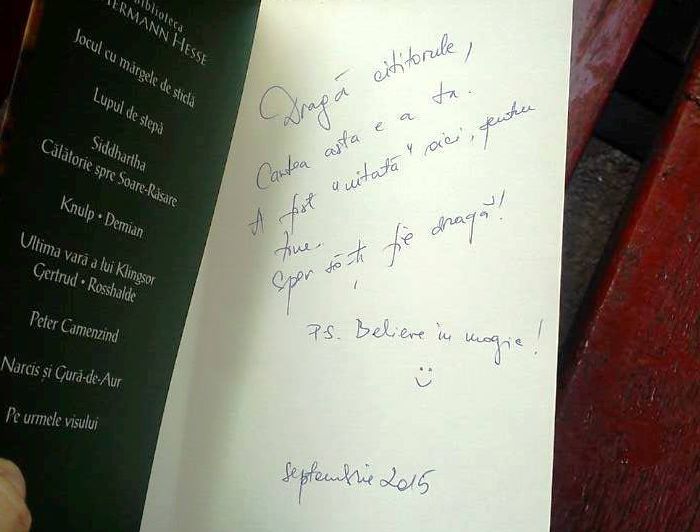 Biblioteca
HERMANN HESSE
Jocul cu mărgele de sticlă
Lupul de stepă
Siddhartha
Călătorie spre Soare-Răsare
Knulp • Demian
Ultima vară a lui Klingsor
Gertrud • Rosshalde
Peter Camenzind
Narcis și Gură-de-Aur
Pe urmele visului
Dragă cititorule,
Cartea asta e a ta.
A fost "uitată" aici, pentru
tine.
Sper să-ți fie dragă!
P.S. Believe in magic!
septembrie 2015